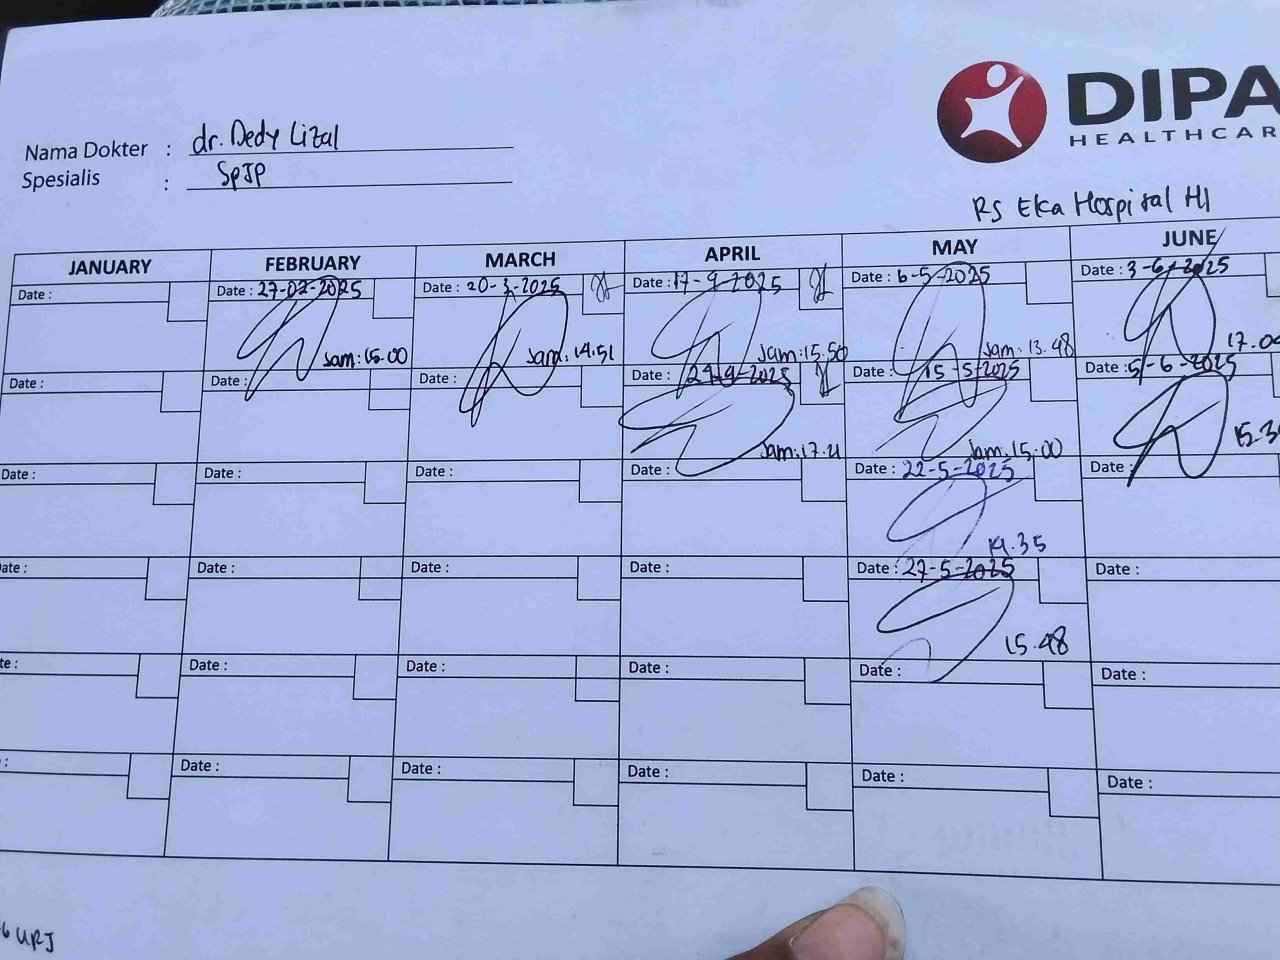 DIPA
HEALTHCAR
Nama Dokter : dr. Dedy Lizal
Spesialis : SpJP
RS Eka Hospital H1
JANUARY FEBRUARY MARCH APRIL MAY JUNE
Date : Date : 27-02-2025 Date : 20-3-2025 Date : 17-4-2025 Date : 6-5-2025 Date : 3-6-2025
Jam: 15.00 Jam: 14.51 Jam: 15.50 Jam: 13.48
Date : Date : Date : Date : 24-4-2025 Date : 15-5-2025 Date : 5-6-2025
Jam: 17.21 Jam: 15.00
Date : Date : Date : Date : Date : 22-5-2025 Date :
14.35
ate : Date : Date : Date : Date : 27-5-2025 Date :
15.48
te : Date : Date : Date : Date : Date :
: Date : Date : Date : Date : Date :
URJ